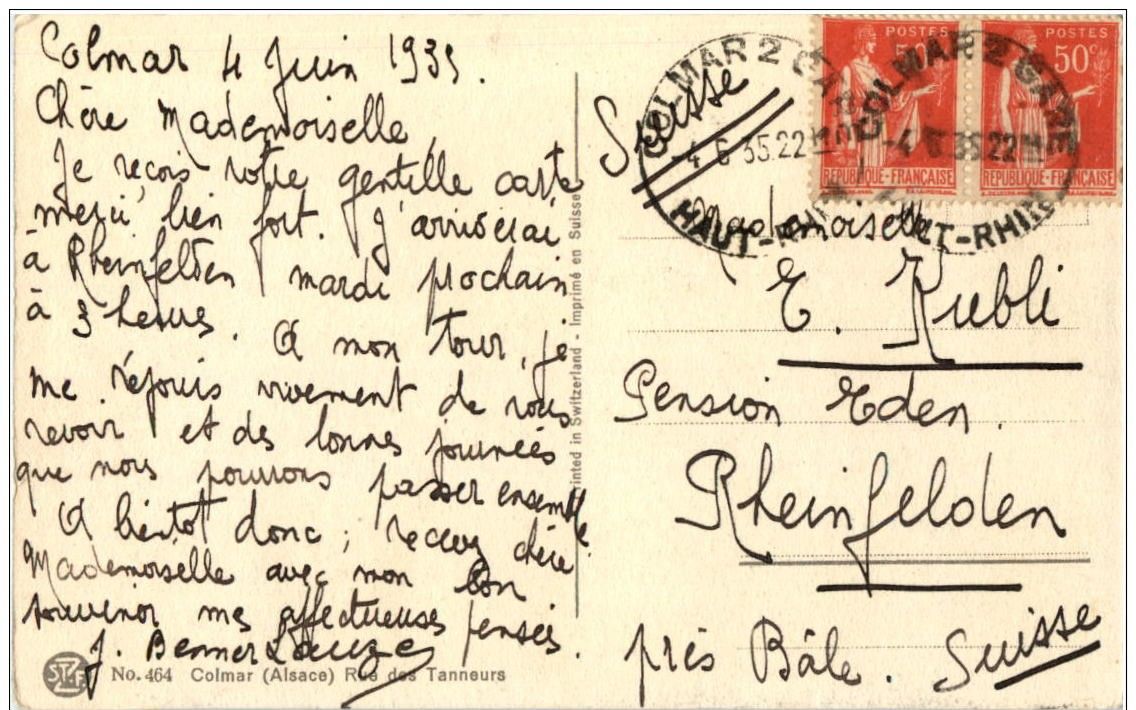 Colmar 4 Juin 1935.
Chère Mademoiselle
Je reçois votre gentille carte
merci bien fort. J'arriverai
à Rheinfelden mardi prochain
à 3 heures. A mon tour, je
me réjouis vivement de vous
revoir et des bonnes journées
que nous pourrons passer ensemble.
A bientôt donc ; recevez chère
Mademoiselle avec mon bon
souvenir mes affectueuses pensées.
J. Benner
No. 464 Colmar (Alsace) Rue des Tanneurs
Printed in Switzerland - Imprimé en Suisse
Suisse
COLMAR 2 GARE
-4 6 35.22
HAUT-RHIN
COLMAR 2 GARE
-4 6 35 22
HAUT-RHIN
POSTES
50c
REPUBLIQUE-FRANÇAISE
POSTES
50c
REPUBLIQUE-FRANÇAISE
Mademoiselle
E. Kubli
Pension Eden.
Rheinfelden
près Bâle. Suisse